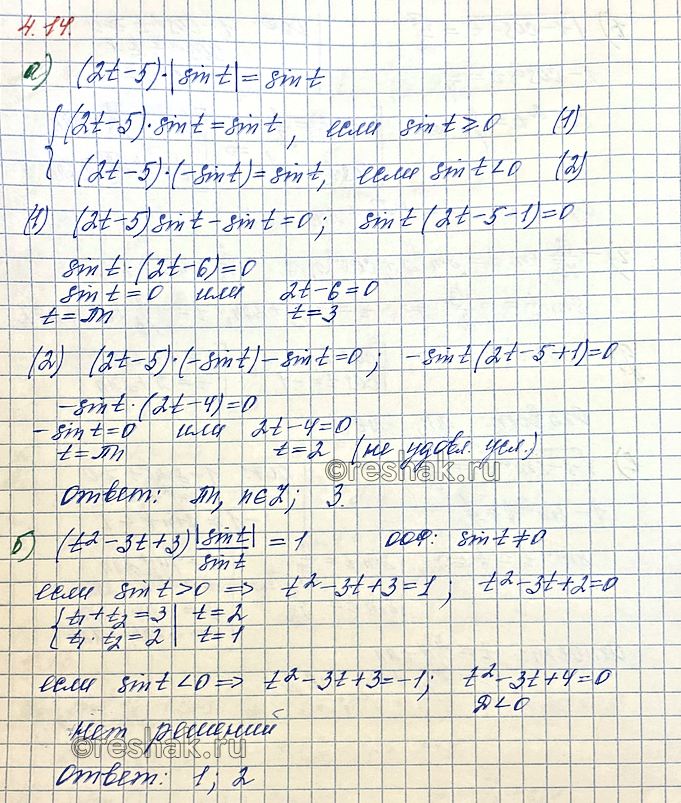 4.14.
а) (2t-5)·|sint|=sint
{(2t-5)·sint=sint, если sint≥0 (1)
(2t-5)·(-sint)=sint, если sint<0 (2)
(1) (2t-5)sint-sint=0; sint(2t-5-1)=0
sint·(2t-6)=0
sint=0 или 2t-6=0
t=πn t=3
(2) (2t-5)·(-sint)-sint=0; -sint(2t-5+1)=0
-sint·(2t-4)=0
-sint=0 или 2t-4=0
t=πn t=2 (не удовл. усл.)
©reshak.ru
Ответ: πn, n∈Z; 3.
б) (t²-3t+3)|sint|/sint=1 ООФ: sint≠0
если sint>0 => t²-3t+3=1; t²-3t+2=0
{t₁+t₂=3| t=2
t₁·t₂=2| t=1
если sint<0 => t²-3t+3=-1; t²-3t+4=0
D<0
нет решений
©reshak.ru
Ответ: 1; 2